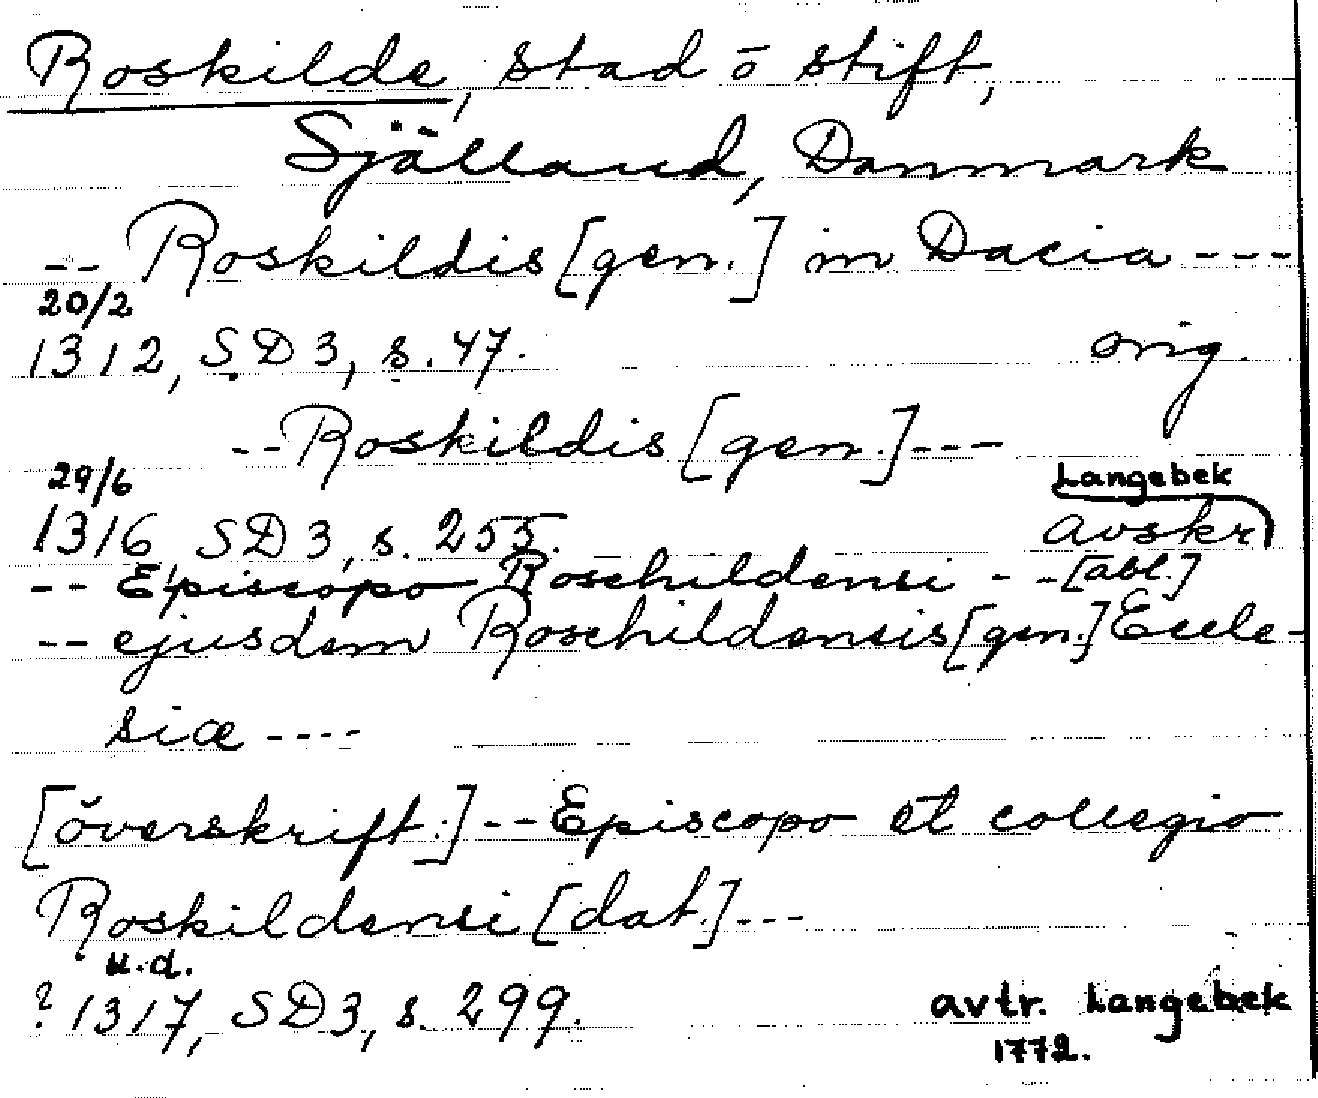 Roskilde, stad ō stift,
Själland, Danmark
-- Roskildis [gen.] in Dacia ---
20/2
1312, SD 3, s. 47. orig.
-- Roskildis [gen.] ---
29/6 Langebek
1316, SD 3, s. 255. avskr
-- Episcopo Roschildensi -- [abl.]
-- ejusdem Roschildensis [gen.] Eccle-
siæ ----
[överskrift:] -- Episcopo et collegio
Roskildensi [dat.] ---
u.d.
? 1317, SD 3, s. 299. avtr. Langebek
1772.